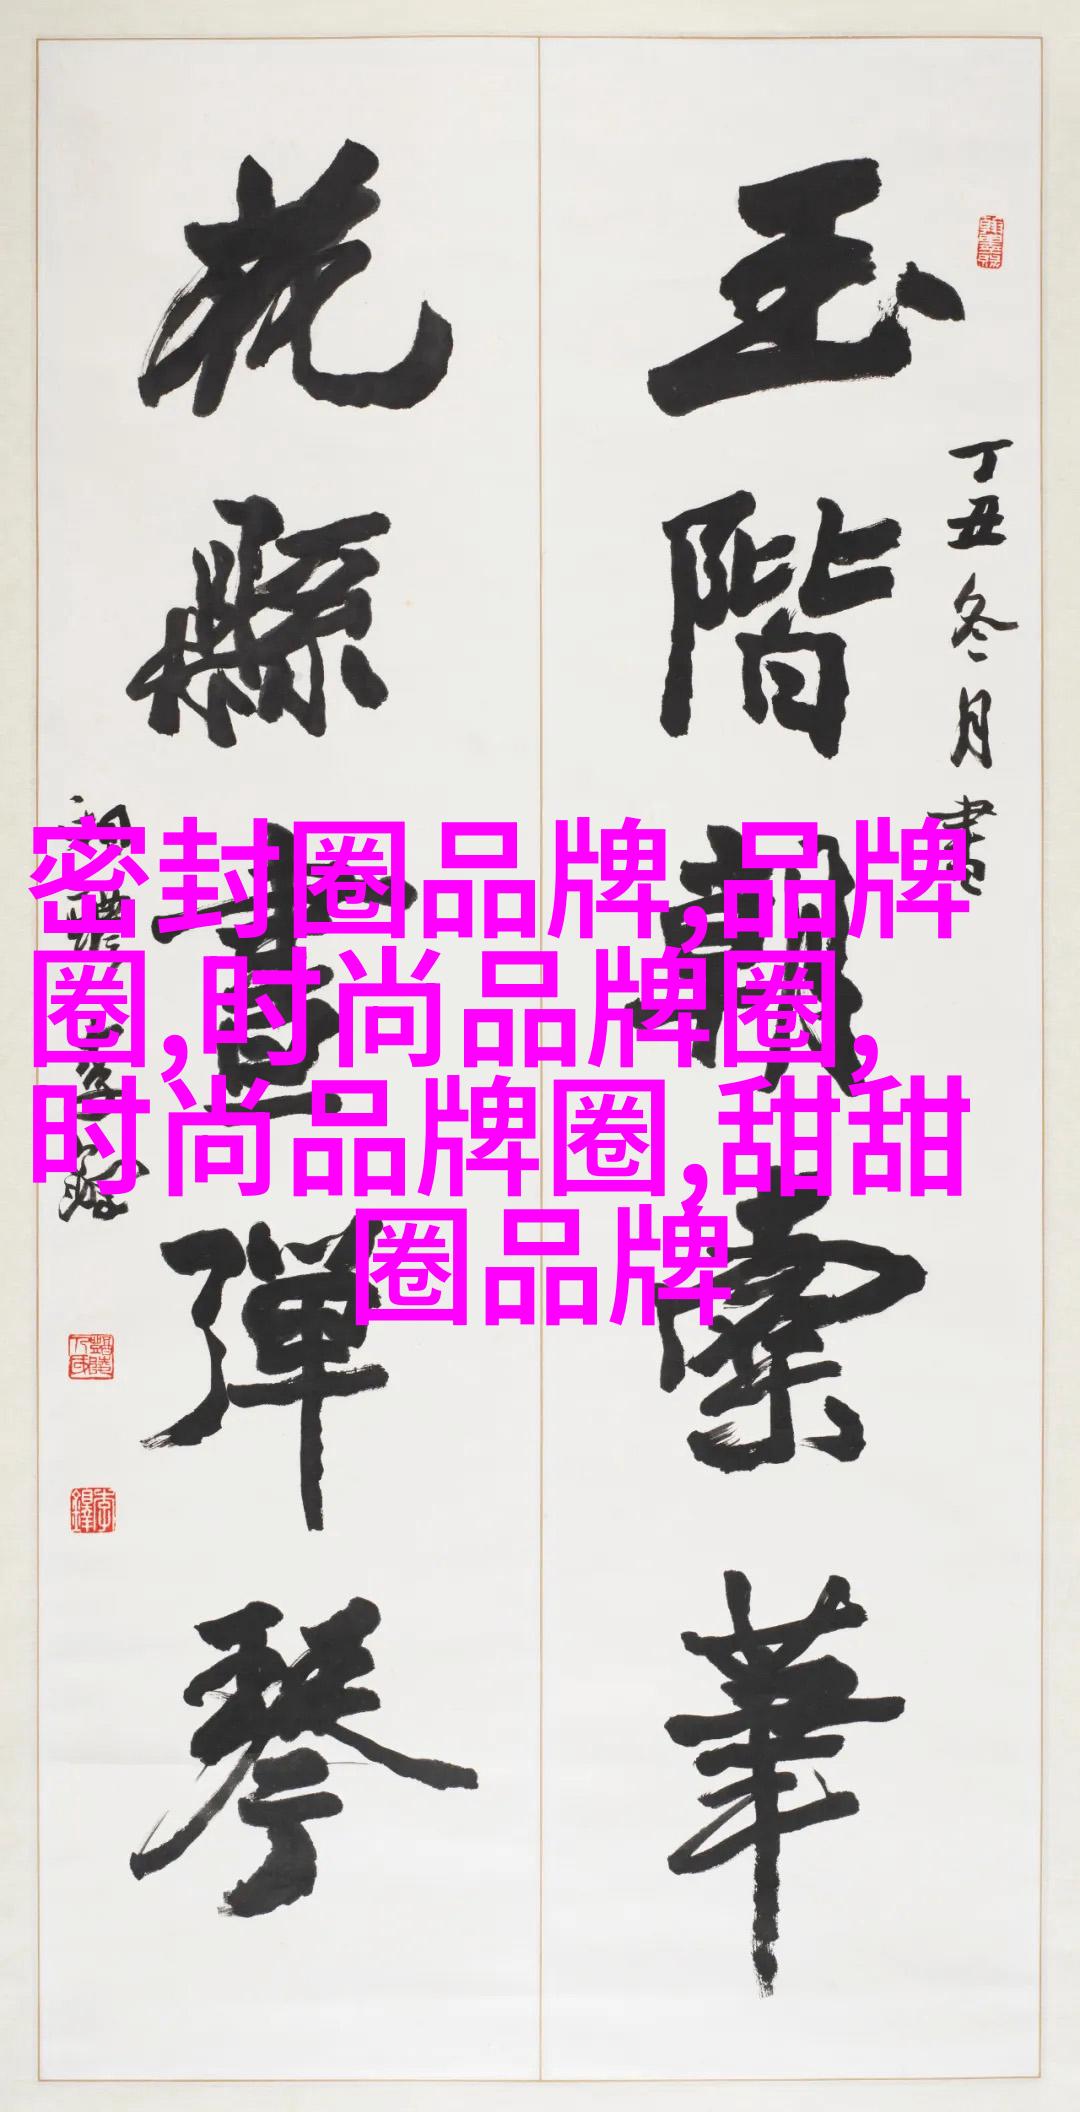 玉階覿雲華
花縣畫彈琴
丁丑冬月書
密封圈品牌,品牌
圈,时尚品牌圈,
时尚品牌圈,甜甜
圈品牌